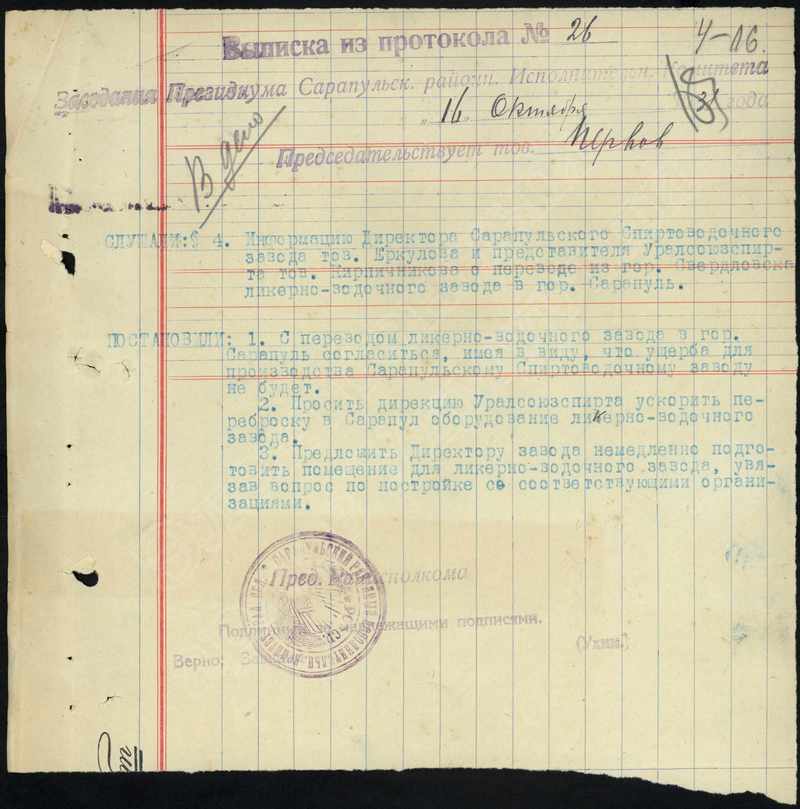 Выписка из протокола № 26
4-16.
Заседания Президиума Сарапульск. районн. Исполнительн. Комитета
"16 Октября 31 года
В дело
Председательствует тов. Перков
СЛУШАЛИ:§ 4. Информацию Директора Сарапульского Спиртоводочного
завода тов. Еркулова и представителя Уралсоюзспир-
та тов. Кирпичникова о переводе из гор. Свердловска
ликерно-водочного завода в гор. Сарапуль.
ПОСТАНОВИЛИ: 1. С переводом ликерно-водочного завода в гор.
Сарапуль согласиться, имея в виду, что ущерба для
производства Сарапульскому Спиртоводочному заводу
не будет.
2. Просить дирекцию Уралсоюзспирта ускорить пе-
реброску в Сарапул оборудование ликерно-водочного
завода.
3. Предложить Директору завода немедленно подго-
товить помещение для ликерно-водочного завода, увя-
зав вопрос по постройке со соответствующими органи-
зациями.
САРАПУЛЬСКИЙ РАЙОННЫЙ
Пред. исполкома
надлежащими подписями.
(Ухин.)
Верно: